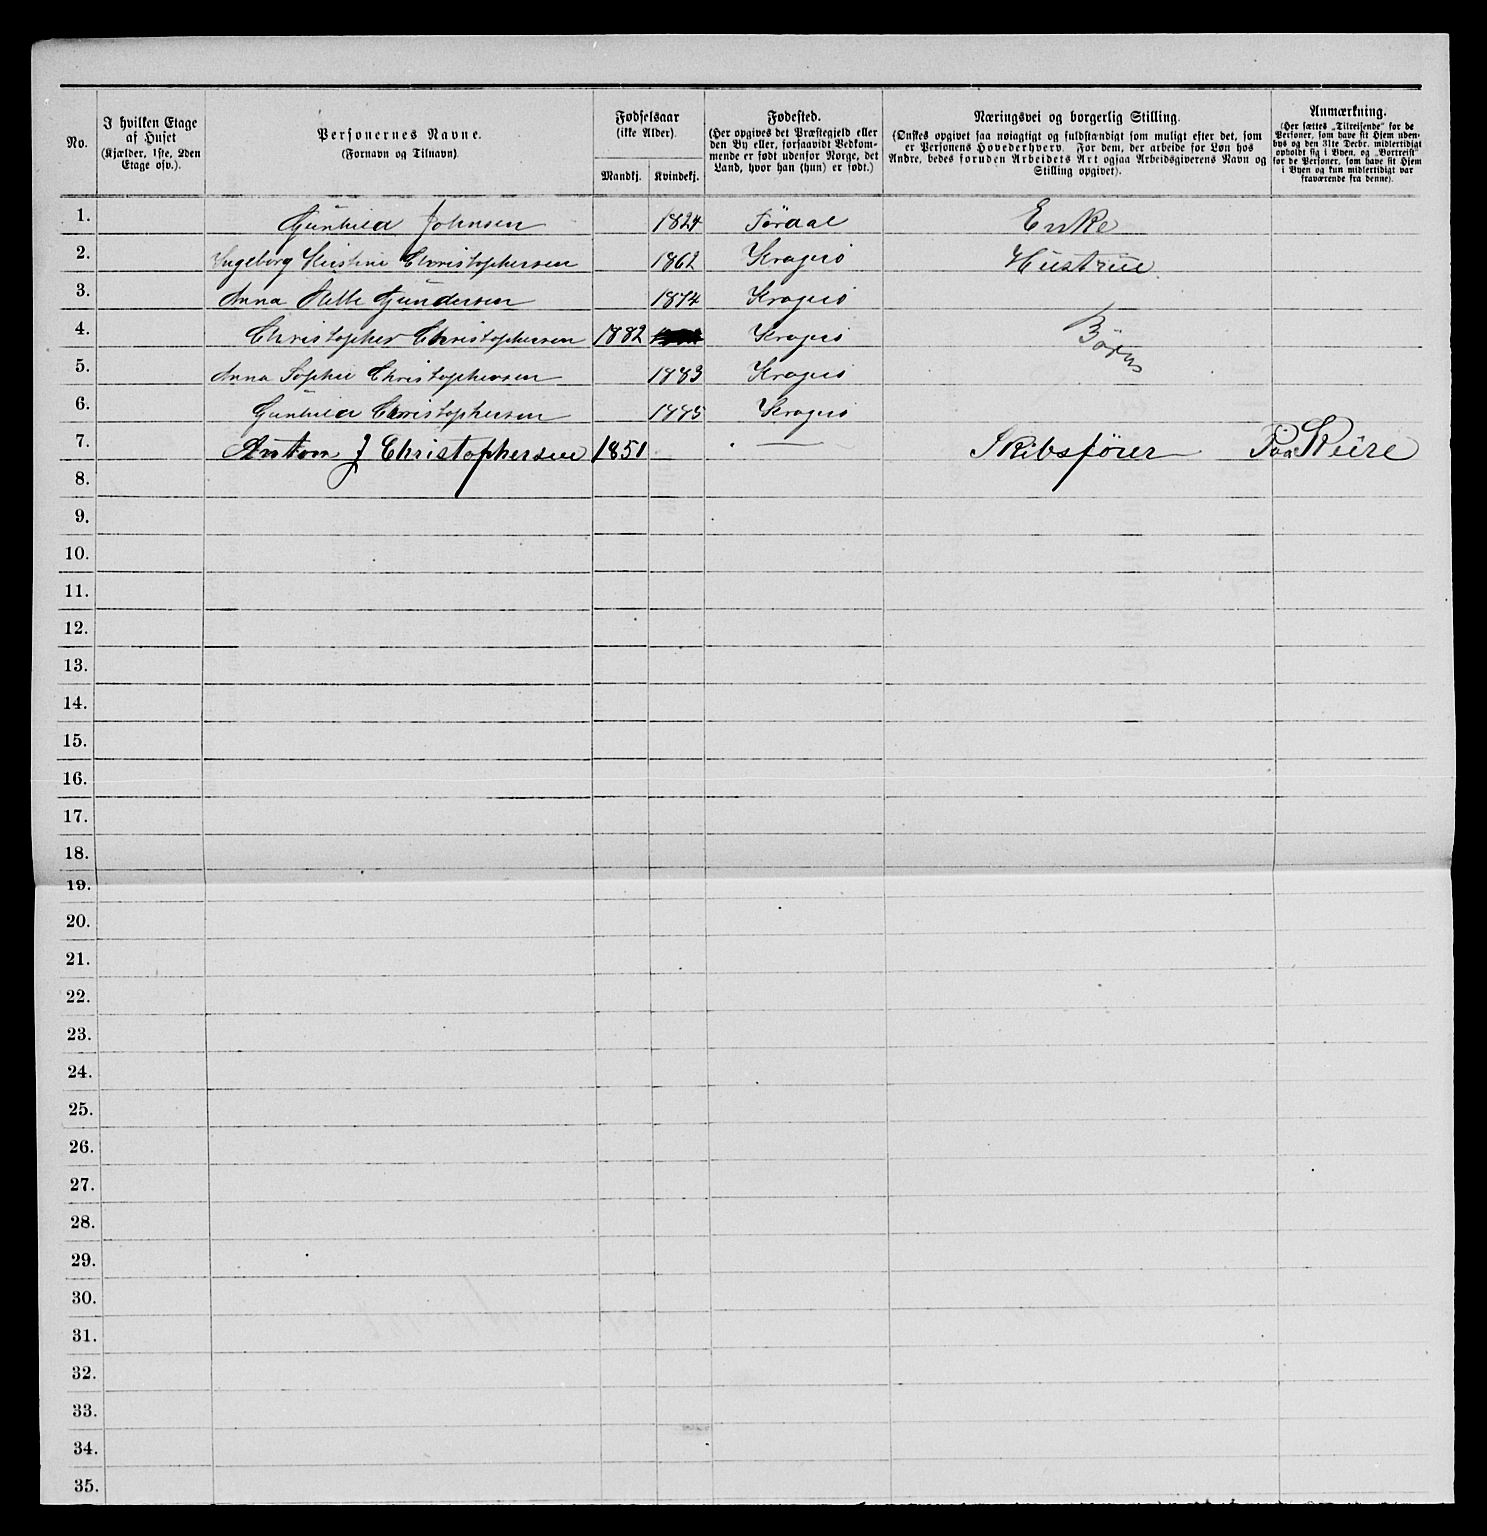 No.
I hvilken Etage af Huset (Kjælder, 1ste, 2den Etage osv.).
Personernes Navne. (Fornavn og Tilnavn)
Fødselsaar (ikke Alder).
Mandkj. Kvindekj.
Fødested. (Her opgives det Præstegjeld eller den By eller, forsaavidt Vedkommende er født udenfor Norge, det Land, hvor han (hun) er født.)
Næringsvei og borgerlig Stilling. (Ønskes opgivet saa nøiagtigt og fuldstændigt som muligt efter det, som er Personens Hovederhverv. For dem, der arbeide for Løn hos Andre, bedes foruden Arbeidets Art ogsaa Arbeidsgiverens Navn og Stilling opgivet).
Anmærkning. (Her sættes „Tilreisende" for de Personer, som have sit Hjem udenbys og den 31te Decbr. midlertidigt opholdt sig i Byen, og „Bortreist" for de Personer, som have sit Hjem i Byen og kun midlertidigt var fraværende fra denne).
1. Gunhild Johnsen 1824 Tørdal Enke
2. Ingeborg Kirstine Christophersen 1862 Kragerø Hustrue.
3. Anna Gundersen 1874 Kragerø
4. Christopher Christophersen 1882 Kragerø Børn
5. Anna Sophie Christophersen 1883 Kragerø
6. Gunhild Christophersen 1885 Kragerø
7. Anton J Christophersen 1851 — Skibsfører Paa Reise
8.
9.
10.
11.
12.
13.
14.
15.
16.
17.
18.
19.
20.
21.
22.
23.
24.
25.
26.
27.
28.
29.
30.
31.
32.
33.
34.
35.